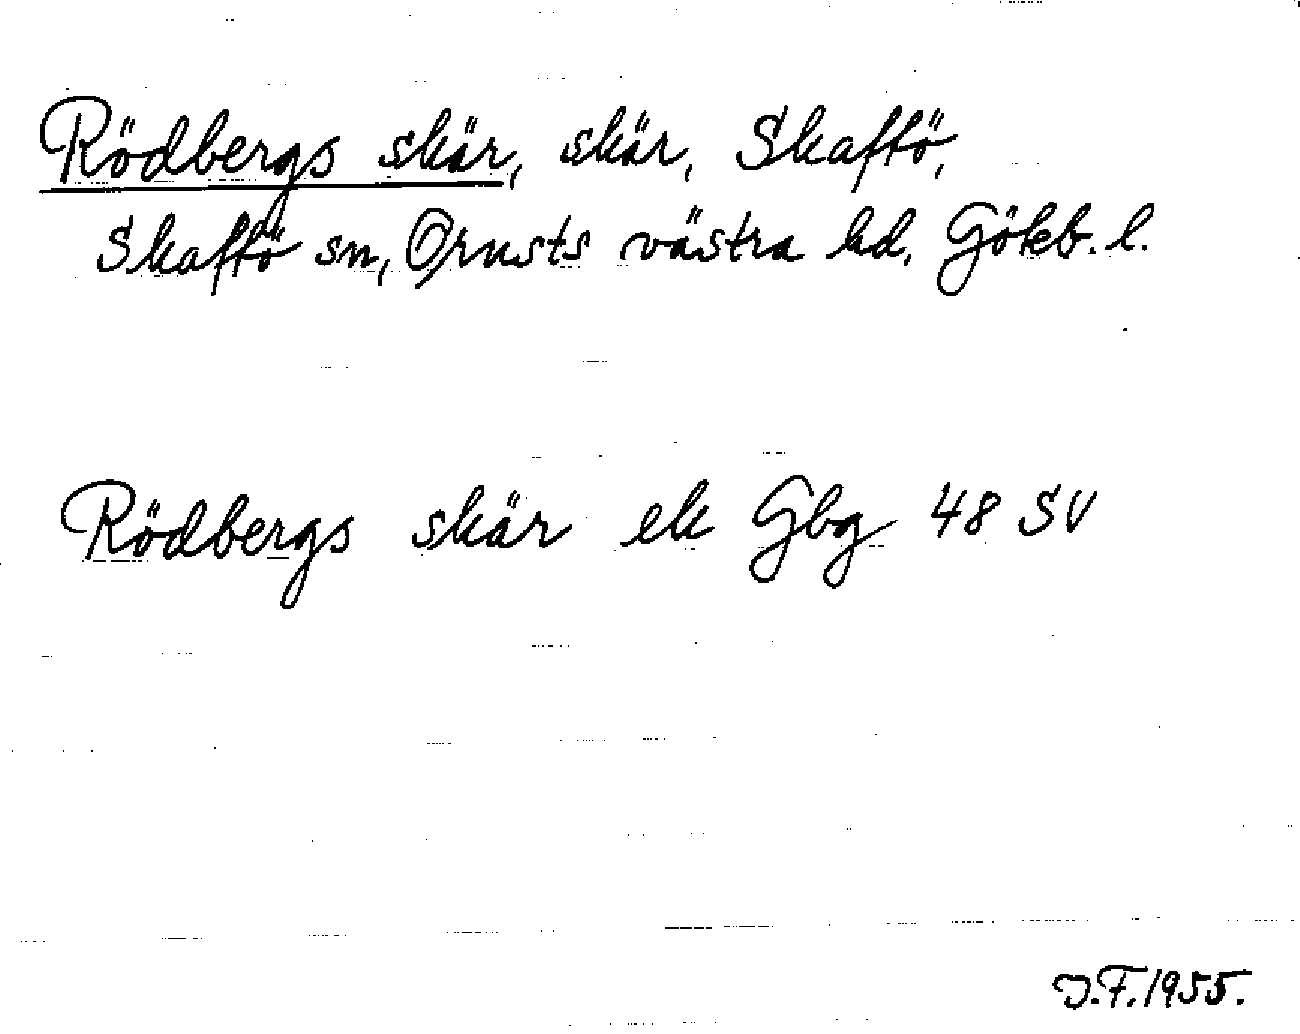 Rödbergs skär, skär, Skaftö,
Skaftö sn, Orusts västra hd, Göteb. l.
Rödbergs skär ek Gbg 48 SV
J.F. 1955.